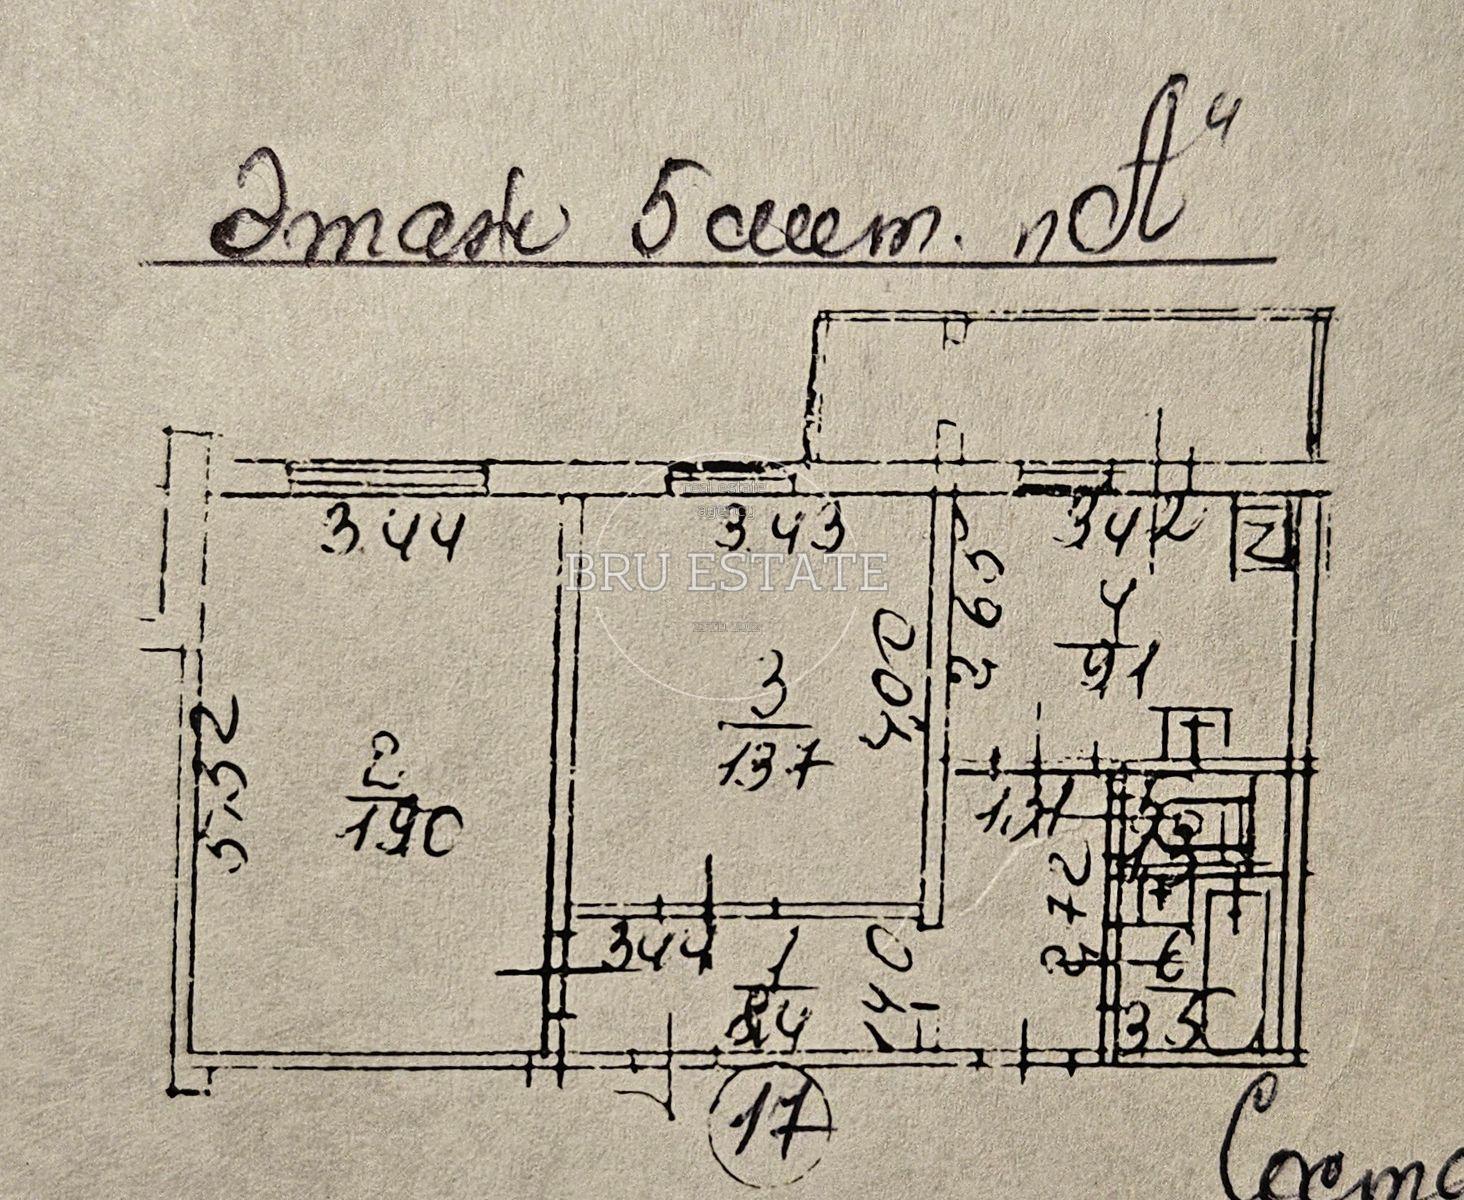 Этаж 5 лит. „А"
3.44
3.43
3.42
real estate
agency
BRU ESTATE
2.65
4
9,1
4,00
3
13.7
5.52
2
19,0
1,31
2.72
344
1
8,4
1,40
6
3,5
17